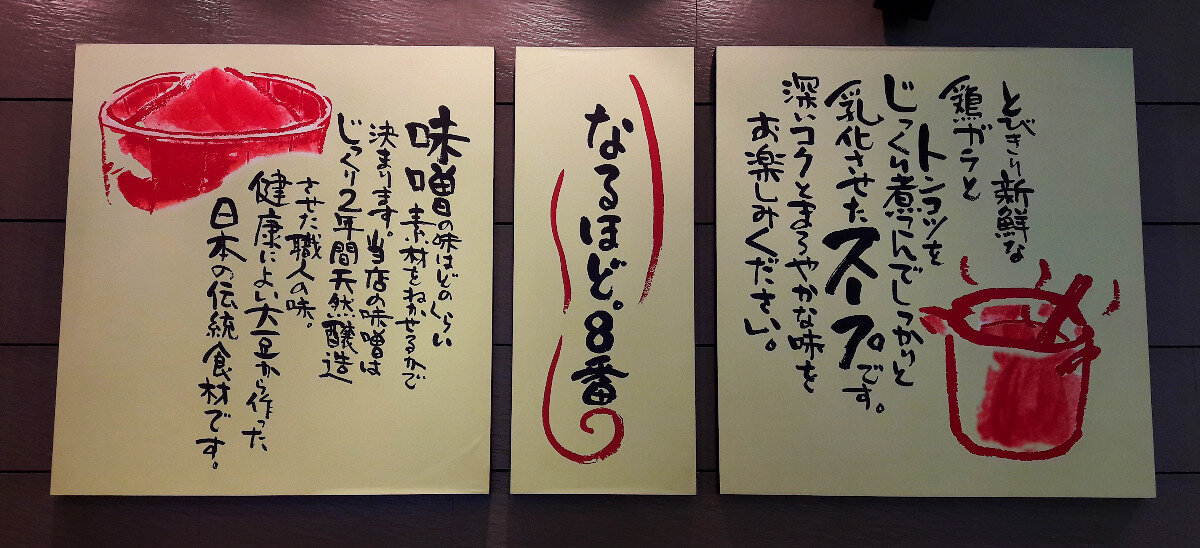 とびきり新鮮な
鶏ガラと
トンコツを
じっくり煮こんでしっかりと
乳化させたスープです。
深いコクとまろやかな味を
お楽しみください。
なるほど。8番
味噌の味はどのくらい
素材をねかせるかで
決まります。当店の味噌は
じっくり2年間天然醸造
させた職人の味。
健康によい大豆から作った、
日本の伝統食材です。